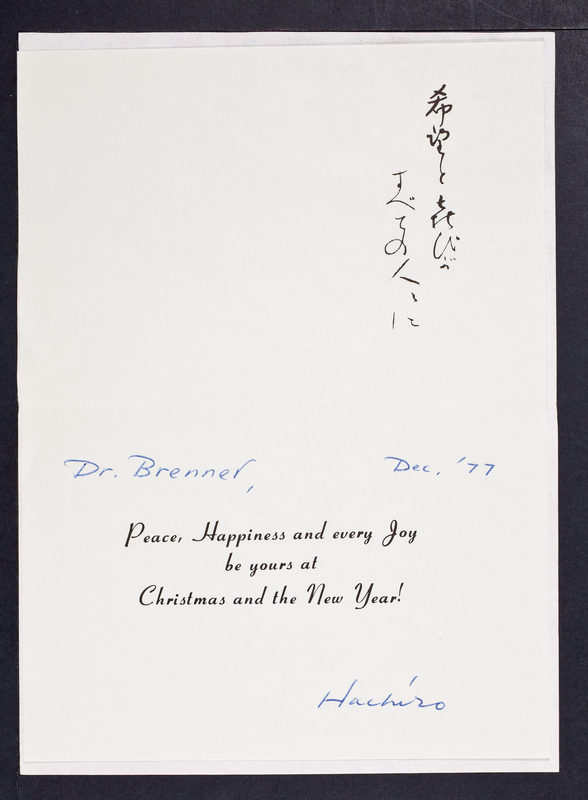 希望と喜びが
すべての人々に
Dr. Brenner,
Dec, '77
Peace, Happiness and every Joy
be yours at
Christmas and the New Year!
Hachiro